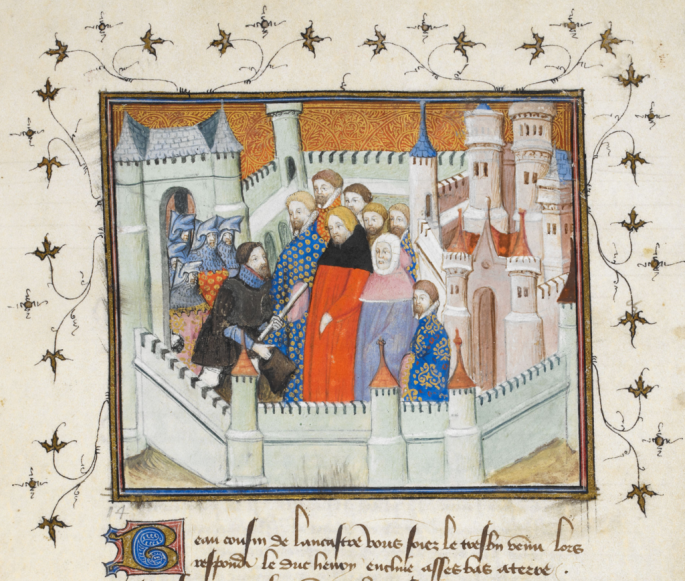 14
Beau cousin de lancastre vous soiez le tresbn venu lors
respondi le duc henry encline asses bas a terre .